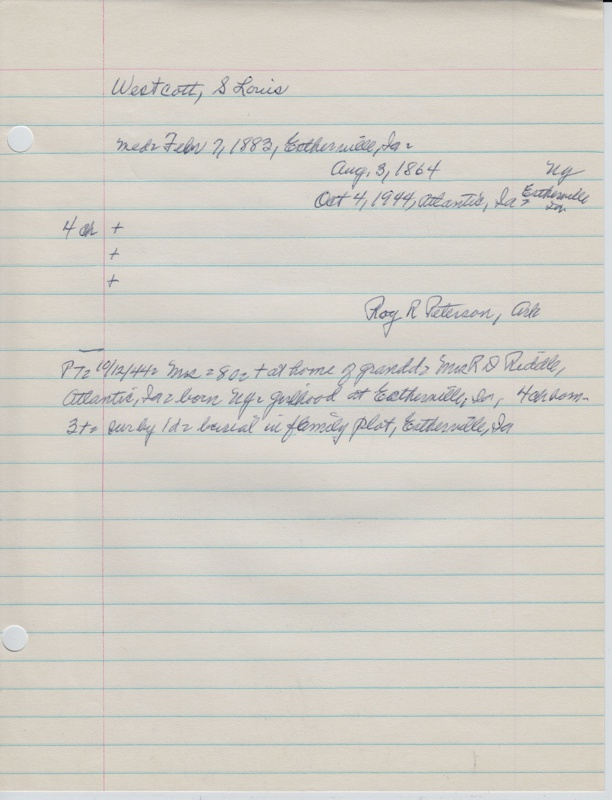 Westcott, S Louis
md= Febr 7, 1883, Estherville, Ia=
Aug, 3, 1864 Ny
Oct 4, 1944, Atlantic, Ia= Estherville Ia=
4 ch +
+
+
Roy R Peterson, Ark
PT= 10/12/44= Mrs = 80= + at home of grandd= Mrs R D Riddle,
Atlantic, Ia= born Ny= girlhood at Estherville, Ia, 4 ch born-
3+= sur by 1 d= burial in family plot, Estherville, Ia